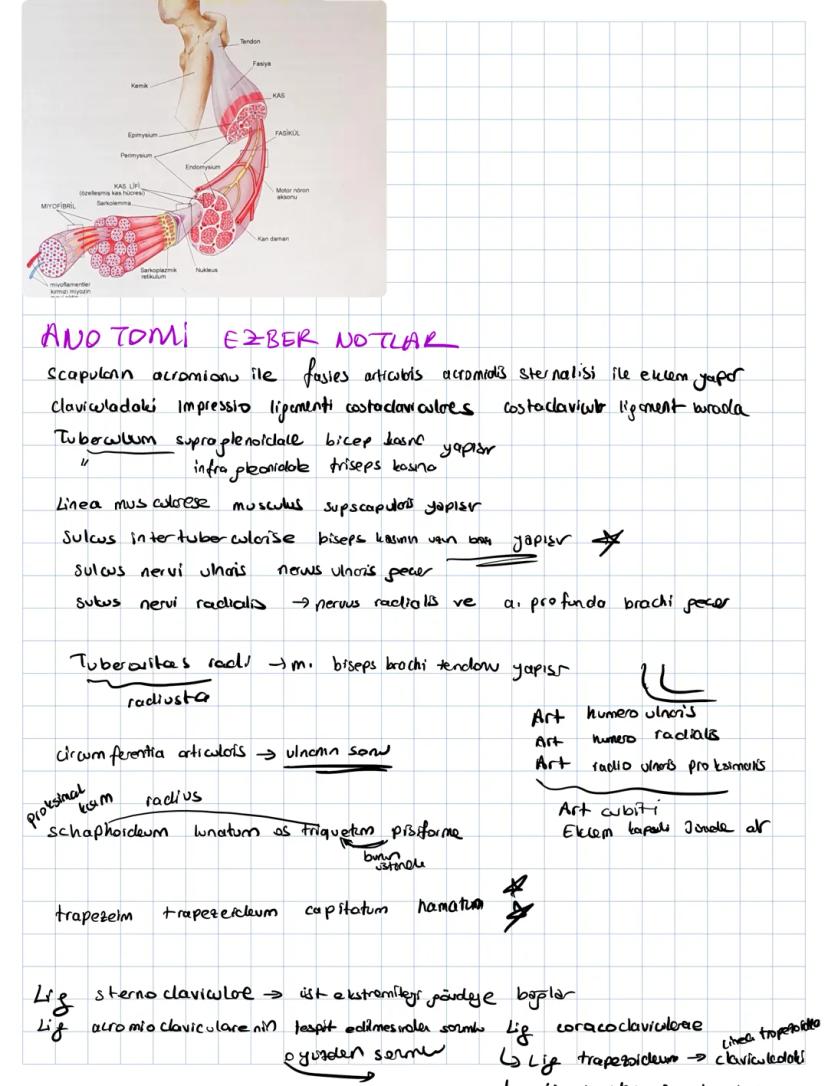 Tendon
Fasiya
Kemik
KAS
Epimysium
FASİKÜL
Perimysium
Endomysium
KAS LİFİ
(özelleşmiş kas hücresi)
Motor nöron
aksonu
Sarkolemma
MİYOFİBRİL
Kan damarı
Sarkoplazmik
retikulum
Nukleus
miyoflamentler
kırmızı miyozin
ANOTOMİ EZBER NOTLAR
Scapulanın acromionu ile fasies articularis acromialis sternalisi ile eklem yapar
Claviculadaki impressio ligamenti costaclaviculares costaclavicular ligament burada
Tuberculum supraglenoidale bicep kasını yapışır
" infraglenoidale triseps kasına
Linea musculorese musculus supscapularis yapışır
Sulcus intertubercularise biseps kasının uzun başı yapışır
Sulcus nervi ulnaris nervus ulnaris geçer
Sulcus nervi radialis → nervus radialis ve a. profunda brachi geçer
Tuberositas radi → m. biseps brachi tendonu yapışır
radiusta
Art humero ulnaris
Art humero radialis
Art radio ulnaris proksimalis
circumferentia articularis → ulnanın sonu
Art cubiti
Eklem kapsülü
proksimal kısım radius
schaphoideum lunatum os triquetum pisiforme
bunun üstünde
trapezeim trapezeideum capitatum hamatum
Lig sternoclaviculae → üst ekstremiteyi gövdeye bağlar
Lig acromioclavicularenin tespit edilmesinden sorumlu
o yüzden sorumlu
Lig coracoclaviculerae
↳ Lig trapezoideum → claviculadaki
Linea trapezoidea